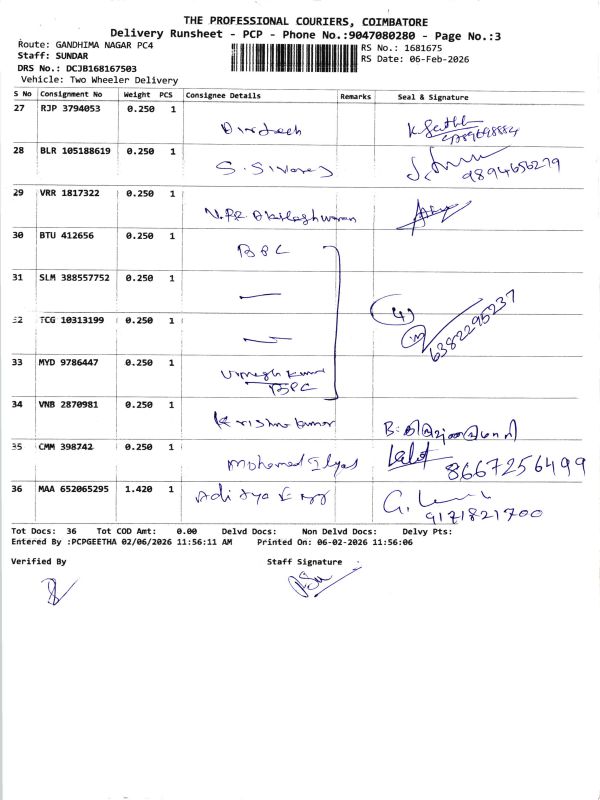 THE PROFESSIONAL COURIERS, COIMBATORE
Delivery Runsheet - PCP - Phone No.:9047080280 - Page No.:3
Route: GANDHIMA NAGAR PC4
Staff: SUNDAR
DRS No.: DCJB168167503
Vehicle: Two Wheeler Delivery
RS No.: 1681675
RS Date: 06-Feb-2026
S No Consignment No Weight PCS Consignee Details Remarks Seal & Signature
27 RJP 3794053 0.250 1
28 BLR 105188619 0.250 1 9894656279
29 VRR 1817322 0.250 1
30 BTU 412656 0.250 1 BPC
31 SLM 388557752 0.250 1 —
32 TCG 10313199 0.250 1 — (4) 6382295237
33 MYD 9786447 0.250 1 BPC
34 VNB 2870981 0.250 1 Krishnakumar
35 CMM 398742 0.250 1 Mohamed Ilyas Lalit 8667256499
36 MAA 652065295 1.420 1 Aditya 9171821700
Tot Docs: 36 Tot COD Amt: 0.00 Delvd Docs: Non Delvd Docs: Delvy Pts:
Entered By :PCPGEETHA 02/06/2026 11:56:11 AM Printed On: 06-02-2026 11:56:06
Verified By Staff Signature